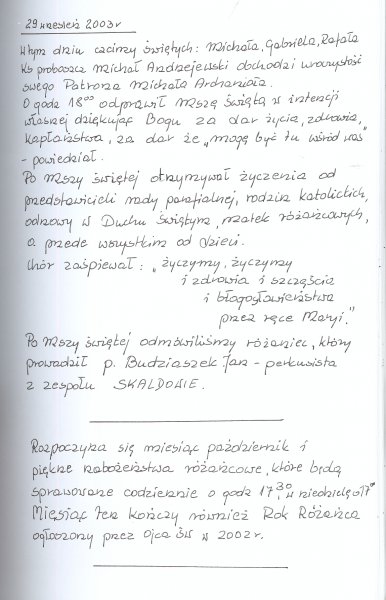 29 wrzesień 2003 r
W tym dniu czcimy świętych: Michała, Gabriela, Rafała
Ks proboszcz Michał Andrzejewski obchodzi uroczystość
swego Patrona Michała Archanioła.
O godz 18⁰⁰ odprawił Mszę świętą w intencji
własnej dziękując Bogu za dar życia, zdrowia,
Kapłaństwa, za dar że „mogę być tu wśród was"
- powiedział.
Po Mszy świętej otrzymywał życzenia od
przedstawicieli rady parafialnej, rodzin katolickich,
odnowy w Duchu Świętym, matek różańcowych,
a przede wszystkim od dzieci.
Chór zaśpiewał: „życzymy, życzymy
i zdrowia i szczęścia
i błogosławieństwa
przez ręce Maryi."
Po Mszy świętej odmówiliśmy różaniec, który
prowadził p. Budziaszek Jan - perkusista
z zespołu SKALDOWIE.
Rozpoczyna się miesiąc październik i
piękne nabożeństwa różańcowe, które będą
sprawowane codziennie o godz 17³⁰, w niedzielę o 17⁰⁰
Miesiąc ten kończy również Rok Różańca
ogłoszony przez Ojca Św w 2002 r.